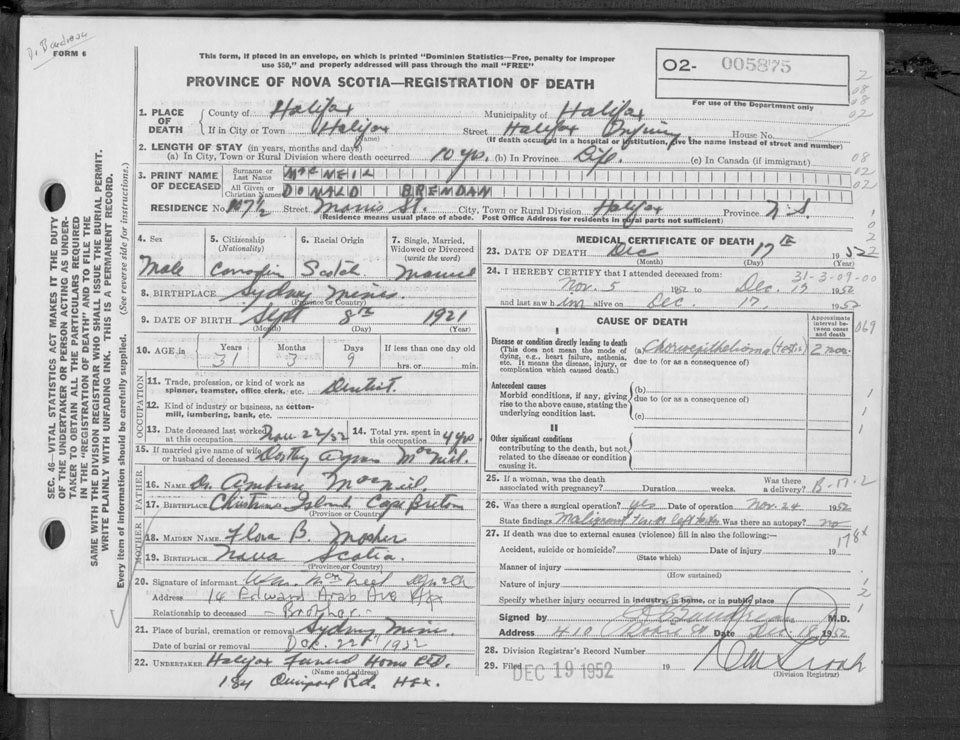 Dr Baudreau
FORM 6
This form, if placed in an envelope, on which is printed "Dominion Statistics—Free, penalty for improper
use $50," and properly addressed will pass through the mail "FREE"
PROVINCE OF NOVA SCOTIA—REGISTRATION OF DEATH
O2- 005875
For use of the Department only
SEC. 46—VITAL STATISTICS ACT MAKES IT THE DUTY
OF THE UNDERTAKER OR PERSON ACTING AS UNDER-
TAKER TO OBTAIN ALL THE PARTICULARS REQUIRED
IN THE "REGISTRATION OF DEATH" AND TO FILE THE
SAME WITH THE DIVISION REGISTRAR WHO SHALL ISSUE THE BURIAL PERMIT.
WRITE PLAINLY WITH UNFADING INK. THIS IS A PERMANENT RECORD.
Every item of information should be carefully supplied. (See reverse side for instructions.)
1. PLACE OF DEATH
County of Halifax Municipality of Halifax
If in City or Town Halifax Street Halifax Infirmary House No.
(Name) (If death occurred in a hospital or institution, give the name instead of street and number)
2. LENGTH OF STAY (in years, months and days)
(a) In City, Town or Rural Division where death occurred 10 yrs. (b) In Province Life. (c) In Canada (if immigrant)
3. PRINT NAME OF DECEASED
Surname or Last Name MacNEIL
All Given or Christian Names DONALD BRENDAN
RESIDENCE No. 107 1/2 Street Morris St. City, Town or Rural Division Halifax Province N.S.
(Residence means usual place of abode. Post Office Address for residents in rural parts not sufficient)
4. Sex Male
5. Citizenship (Nationality) Canadian
6. Racial Origin Scotch
7. Single, Married, Widowed or Divorced (write the word) Married
8. BIRTHPLACE Sydney Mines
(Province or Country)
9. DATE OF BIRTH Sept 8th 1921
(Month) (Day) (Year)
10. AGE in Years 31 Months 3 Days 9 If less than one day old hrs. or min.
OCCUPATION
11. Trade, profession, or kind of work as spinner, teamster, office clerk, etc. Dentist.
12. Kind of industry or business, as cotton-mill, lumbering, bank, etc.
13. Date deceased last worked at this occupation Nov 22/52
14. Total yrs. spent in this occupation 4 yrs
15. If married give name of wife or husband of deceased Dorthy MacNeil.
FATHER
16. NAME Dr. Ambrose MacNeil
17. BIRTHPLACE Christmas Island Cape Breton
(Province or Country)
MOTHER
18. MAIDEN NAME Flora B. Mosher
19. BIRTHPLACE Nova Scotia.
(Province or Country)
20. Signature of informant MacNeil
Address 14 Edward Arab Ave Hfx
Relationship to deceased - Brother -
21. Place of burial, cremation or removal Sydney Mines.
Date of burial or removal Dec. 22nd 1952
22. UNDERTAKER Halifax Funeral Home Ltd.
(Name and address)
184 Quinpool Rd. Hfx.
MEDICAL CERTIFICATE OF DEATH
23. DATE OF DEATH Dec 17th 1952
(Month) (Day) (Year)
31-3-09-00
24. I HEREBY CERTIFY that I attended deceased from:
Nov. 5 1952 to Dec. 17 1952
and last saw him alive on Dec. 17 1952
CAUSE OF DEATH
Approximate interval between onset and death
I
Disease or condition directly leading to death
(This does not mean the mode of dying, e.g., heart failure, asthenia, etc. It means the disease, injury, or complication which caused death.)
(a) Chorioepithelioma (testis) 2 mos.
due to (or as a consequence of)
Antecedent causes
Morbid conditions, if any, giving rise to the above cause, stating the underlying condition last.
(b)
due to (or as a consequence of)
(c)
II
Other significant conditions
contributing to the death, but not related to the disease or condition causing it.
25. If a woman, was the death associated with pregnancy? Duration weeks. Was there a delivery?
26. Was there a surgical operation? yes Date of operation Nov. 24 1952
State findings Malignant left testis Was there an autopsy? no
27. If death was due to external causes (violence) fill in also the following:—
178x
Accident, suicide or homicide? Date of injury 19
(State which)
Manner of injury
(How sustained)
Nature of injury
Specify whether injury occurred in industry, in home, or in public place
Signed by M.D.
Address 410 Robie St Date Dec 18 1952
28. Division Registrar's Record Number
29. Filed DEC 19 1952 19
(Division Registrar)